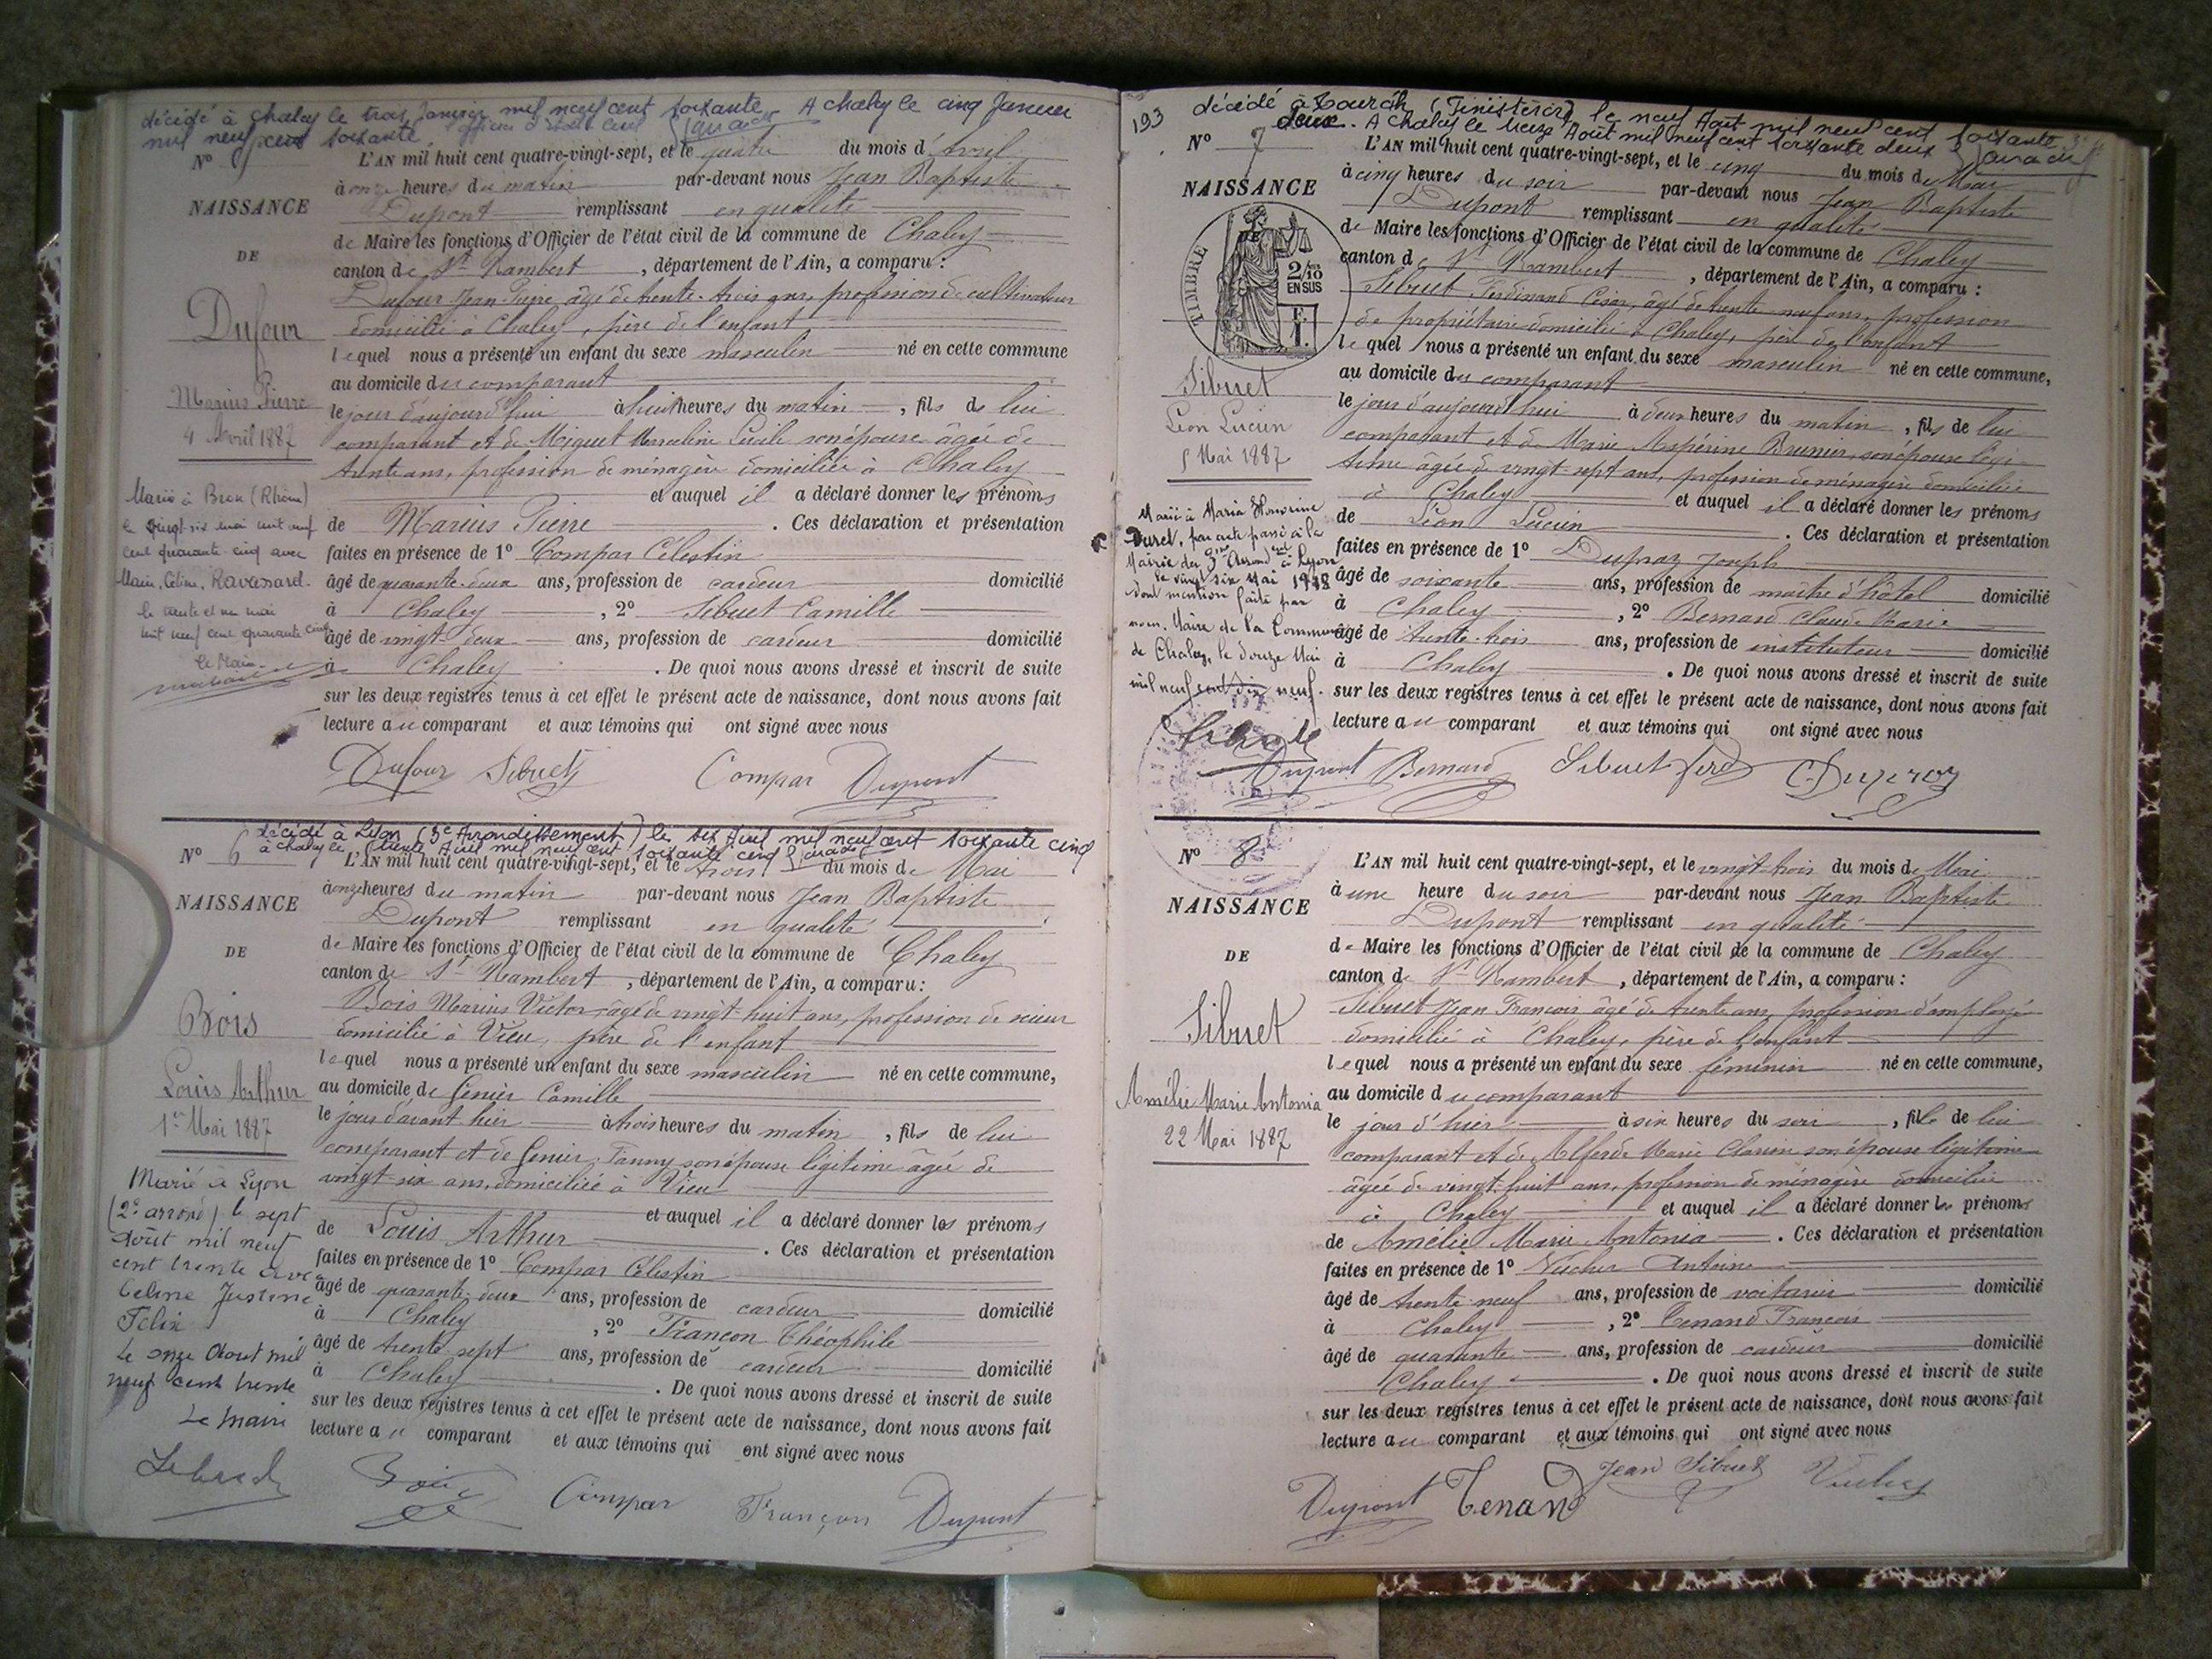 décédé à Chaley le trois Janvier mil neuf cent soixante A Chaley le cinq Janvier
mil neuf cent soixante l'officier d'état civil
N° 5
NAISSANCE
DE
Dufour
Marius Pierre
4 Avril 1887
Marié à Bron (Rhône)
le vingt six mai mil neuf
cent quarante cinq avec
Marie, Céline, Ravassard.
le trente et un mai
mil neuf cent quarante cinq
Le Maire
L'AN mil huit cent quatre-vingt-sept, et le quatre du mois d'Avril
à onze heures du matin par-devant nous Jean Baptiste
Dupont remplissant en qualité
de Maire les fonctions d'Officier de l'état civil de la commune de Chaley
canton de St Rambert, département de l'Ain, a comparu :
Dufour Jean Pierre, âgé de trente-trois ans, profession de cultivateur
domicilié à Chaley, père de l'enfant
lequel nous a présenté un enfant du sexe masculin né en cette commune
au domicile du comparant
le jour d'aujourd'hui à huit heures du matin, fils de lui
comparant et de Miguet Marceline Lucile son épouse âgée de
trente ans, profession de ménagère domiciliée à Chaley
et auquel il a déclaré donner les prénoms
de Marius Pierre. Ces déclaration et présentation
faites en présence de 1° Compar Célestin
âgé de quarante-deux ans, profession de cardeur domicilié
à Chaley, 2° Sibuet Camille
âgé de vingt-deux ans, profession de cardeur domicilié
à Chaley. De quoi nous avons dressé et inscrit de suite
sur les deux registres tenus à cet effet le présent acte de naissance, dont nous avons fait
lecture au comparant et aux témoins qui ont signé avec nous
Dufour Sibuet Compar Dupont
décédé à Lyon (3e Arrondissement) le six Avril mil neuf cent soixante cinq
à Chaley le trente Avril mil neuf cent soixante cinq
N° 6
NAISSANCE
DE
Bois
Louis Arthur
1er Mai 1887
Marié à Lyon
(2e arrond) le sept
Août mil neuf
cent trente avec
Celine Justine
Felix
Le onze Aout mil
neuf cent trente
Le Maire
L'AN mil huit cent quatre-vingt-sept, et le trois du mois de Mai
à onze heures du matin par-devant nous Jean Baptiste
Dupont remplissant en qualité
de Maire les fonctions d'Officier de l'état civil de la commune de Chaley
canton de St Rambert, département de l'Ain, a comparu :
Bois Marius Victor, âgé de vingt-huit ans, profession de scieur
domicilié à Vieu, père de l'enfant
lequel nous a présenté un enfant du sexe masculin né en cette commune,
au domicile de Genier Camille
le jour d'avant hier à trois heures du matin, fils de lui
comparant et de Genier Fanny son épouse légitime âgée de
vingt-six ans, domiciliée à Vieu
et auquel il a déclaré donner les prénoms
de Louis Arthur. Ces déclaration et présentation
faites en présence de 1° Compar Célestin
âgé de quarante-deux ans, profession de cardeur domicilié
à Chaley, 2° Françon Théophile
âgé de trente-sept ans, profession de cardeur domicilié
à Chaley. De quoi nous avons dressé et inscrit de suite
sur les deux registres tenus à cet effet le présent acte de naissance, dont nous avons fait
lecture au comparant et aux témoins qui ont signé avec nous
Bois Compar Françon Dupont
193
décédé à Tourch (Finistère) le neuf Août mil neuf cent soixante
deux. A Chaley le treize Août mil neuf cent soixante deux
N° 7
NAISSANCE
DE
TIMBRE
2/10
EN SUS
Sibuet
Léon Lucien
5 Mai 1887
Marié à Maria Honorine
Duret, par acte passé à la
Mairie du 3me Arrond ent à Lyon
le vingt six Mai 1918
dont mention faite par
nous Maire de la Commune
de Chaley, le douze Mai
mil neuf cent dix neuf.
L'AN mil huit cent quatre-vingt-sept, et le cinq du mois de Mai
à cinq heures du soir par-devant nous Jean Baptiste
Dupont remplissant en qualité
de Maire les fonctions d'Officier de l'état civil de la commune de Chaley
canton de St Rambert, département de l'Ain, a comparu :
Sibuet Ferdinand César, âgé de trente-neuf ans, profession
de propriétaire domicilié à Chaley, père de l'enfant
lequel nous a présenté un enfant du sexe masculin né en cette commune,
au domicile du comparant
le jour d'aujourd'hui à deux heures du matin, fils de lui
comparant et de Marie Brunier, son épouse légi-
time âgée de vingt-sept ans, profession de ménagère domiciliée
à Chaley et auquel il a déclaré donner les prénoms
de Léon Lucien. Ces déclaration et présentation
faites en présence de 1° Dupraz Joseph
âgé de soixante ans, profession de maître d'hôtel domicilié
à Chaley, 2° Bernard Claude Marie
âgé de trente-trois ans, profession de instituteur domicilié
à Chaley. De quoi nous avons dressé et inscrit de suite
sur les deux registres tenus à cet effet le présent acte de naissance, dont nous avons fait
lecture au comparant et aux témoins qui ont signé avec nous
Dupont Bernard Sibuet ferd Dupraz
N° 8
NAISSANCE
DE
Sibuet
Amélie Marie Antonia
22 Mai 1887
L'AN mil huit cent quatre-vingt-sept, et le vingt-trois du mois de Mai
à une heure du soir par-devant nous Jean Baptiste
Dupont remplissant en qualité
de Maire les fonctions d'Officier de l'état civil de la commune de Chaley
canton de St Rambert, département de l'Ain, a comparu :
Sibuet Jean François âgé de trente ans, profession d'employé
domicilié à Chaley, père de l'enfant
lequel nous a présenté un enfant du sexe féminin né en cette commune,
au domicile du comparant
le jour d'hier à six heures du soir, fille de lui
comparant et de Marie son épouse légitime
âgée de vingt-huit ans, profession de ménagère domiciliée
à Chaley et auquel il a déclaré donner les prénoms
de Amélie Marie Antonia. Ces déclaration et présentation
faites en présence de 1° Vucher Antoine
âgé de trente-neuf ans, profession de voiturier domicilié
à Chaley, 2° Tenand François
âgé de quarante ans, profession de cardeur domicilié
Chaley. De quoi nous avons dressé et inscrit de suite
sur les deux registres tenus à cet effet le présent acte de naissance, dont nous avons fait
lecture au comparant et aux témoins qui ont signé avec nous
Dupont Tenand Jean Sibuet Vucher